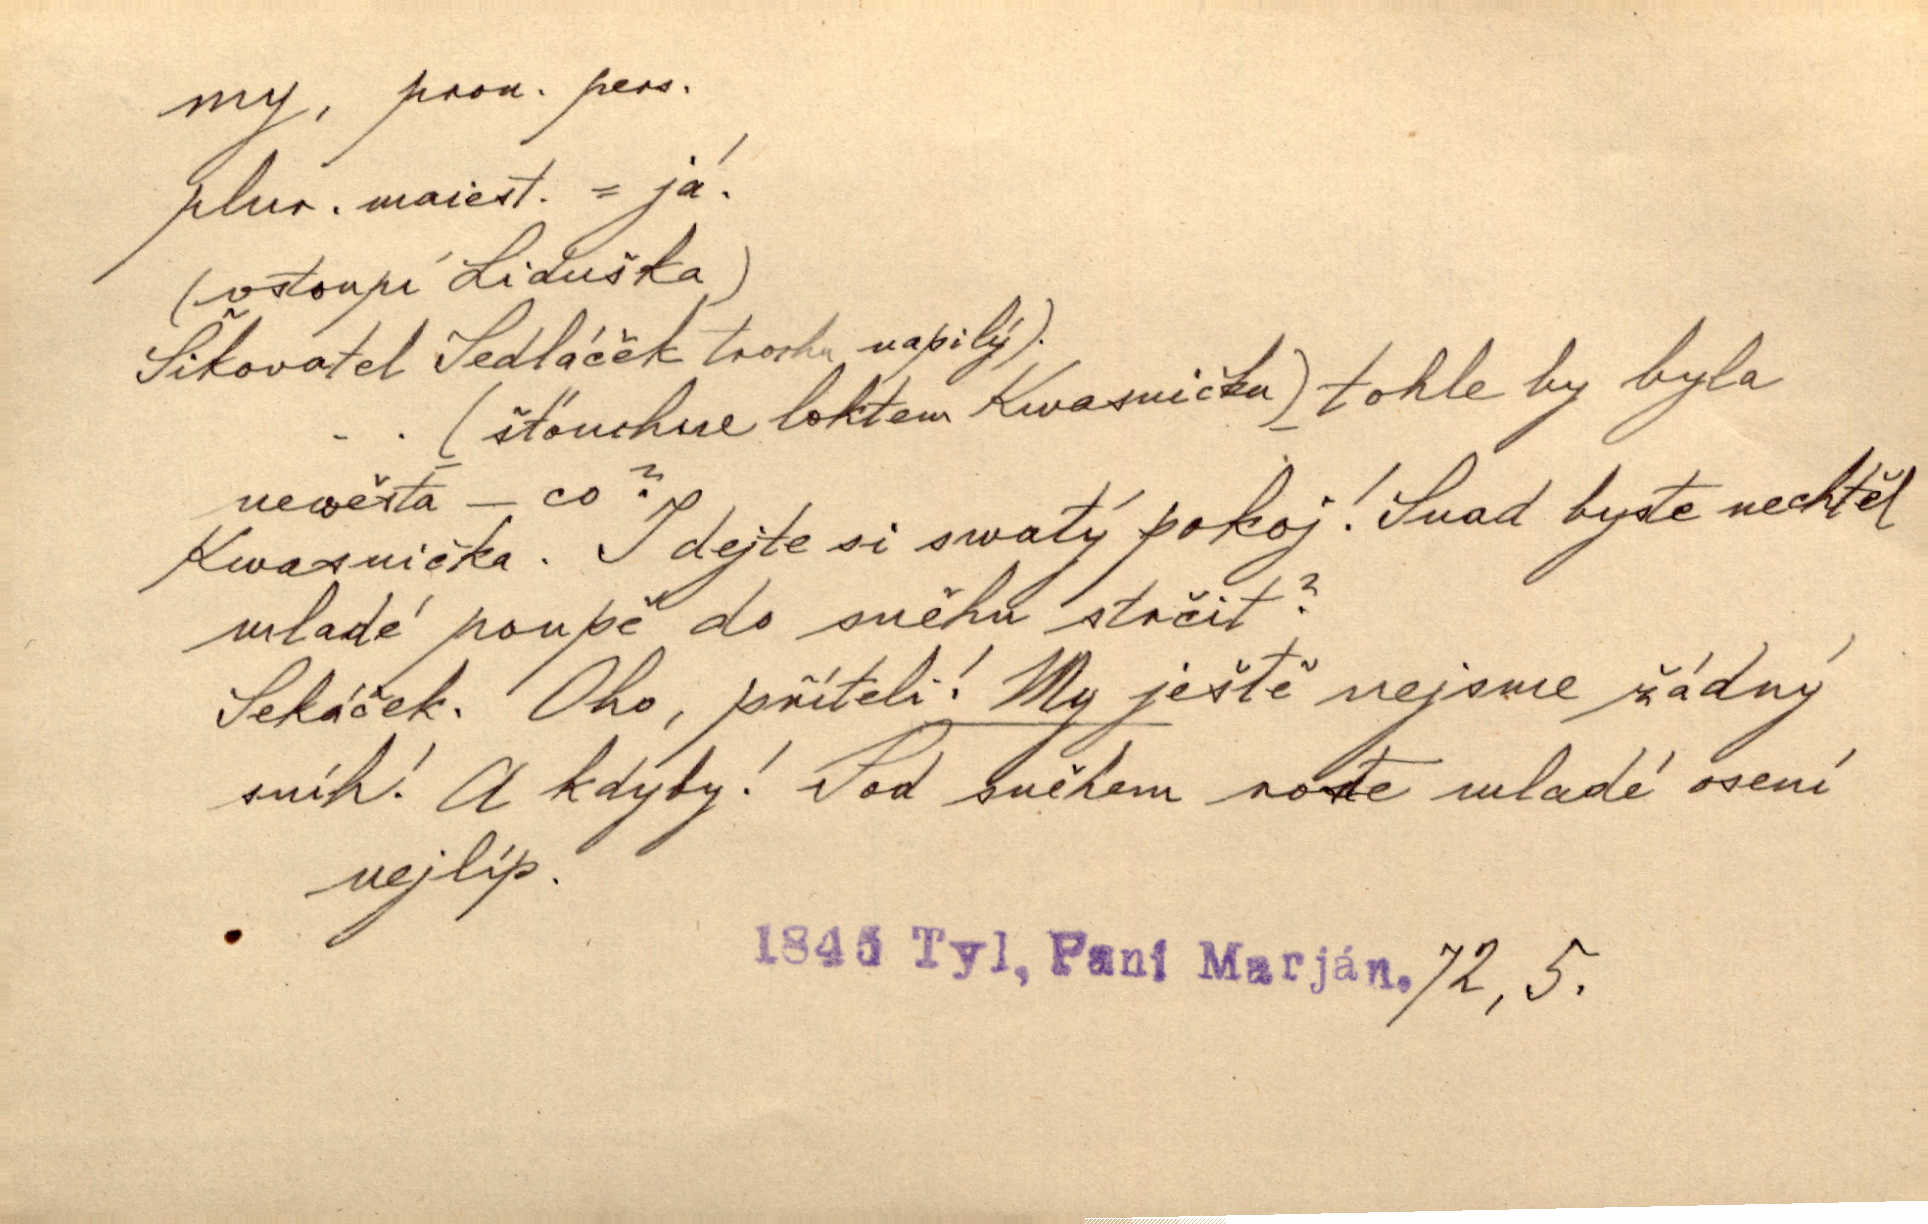 my, pron. pers.
plur. maiest. = já.
(vstoupí Liduška)
Šikovatel Sedláček trochu napilý).
- . (šťouchne loktem Kwasničku) tohle by byla
newěsta – co?
Kwasnička. I dejte si swatý pokoj! Snad byste nechtěl
mladé poupě do sněhu strčit?
Sekáček. Oho, příteli! My ještě nejsme žádný
sníh! A kdyby! Pod sněhem roste mladé osení
nejlíp.
Tyl, Paní Marján. 72, 5.